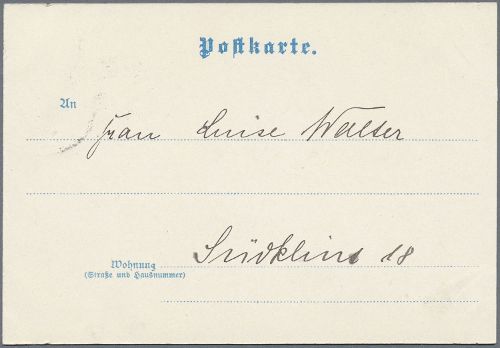 Postkarte.
An
Frau Luise Walter
Südklint 18
Wohnung
(Straße und Hausnummer)